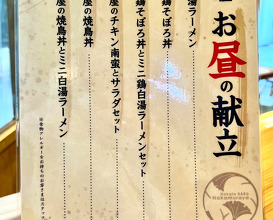 お昼の献立
湯ラーメン
鶏そぼろ丼
鶏そぼろ丼とミニ鶏白湯ラーメンセット
屋のチキン南蛮とサラダセット
屋の焼鳥丼
屋の焼鳥丼とミニ白湯ラーメン